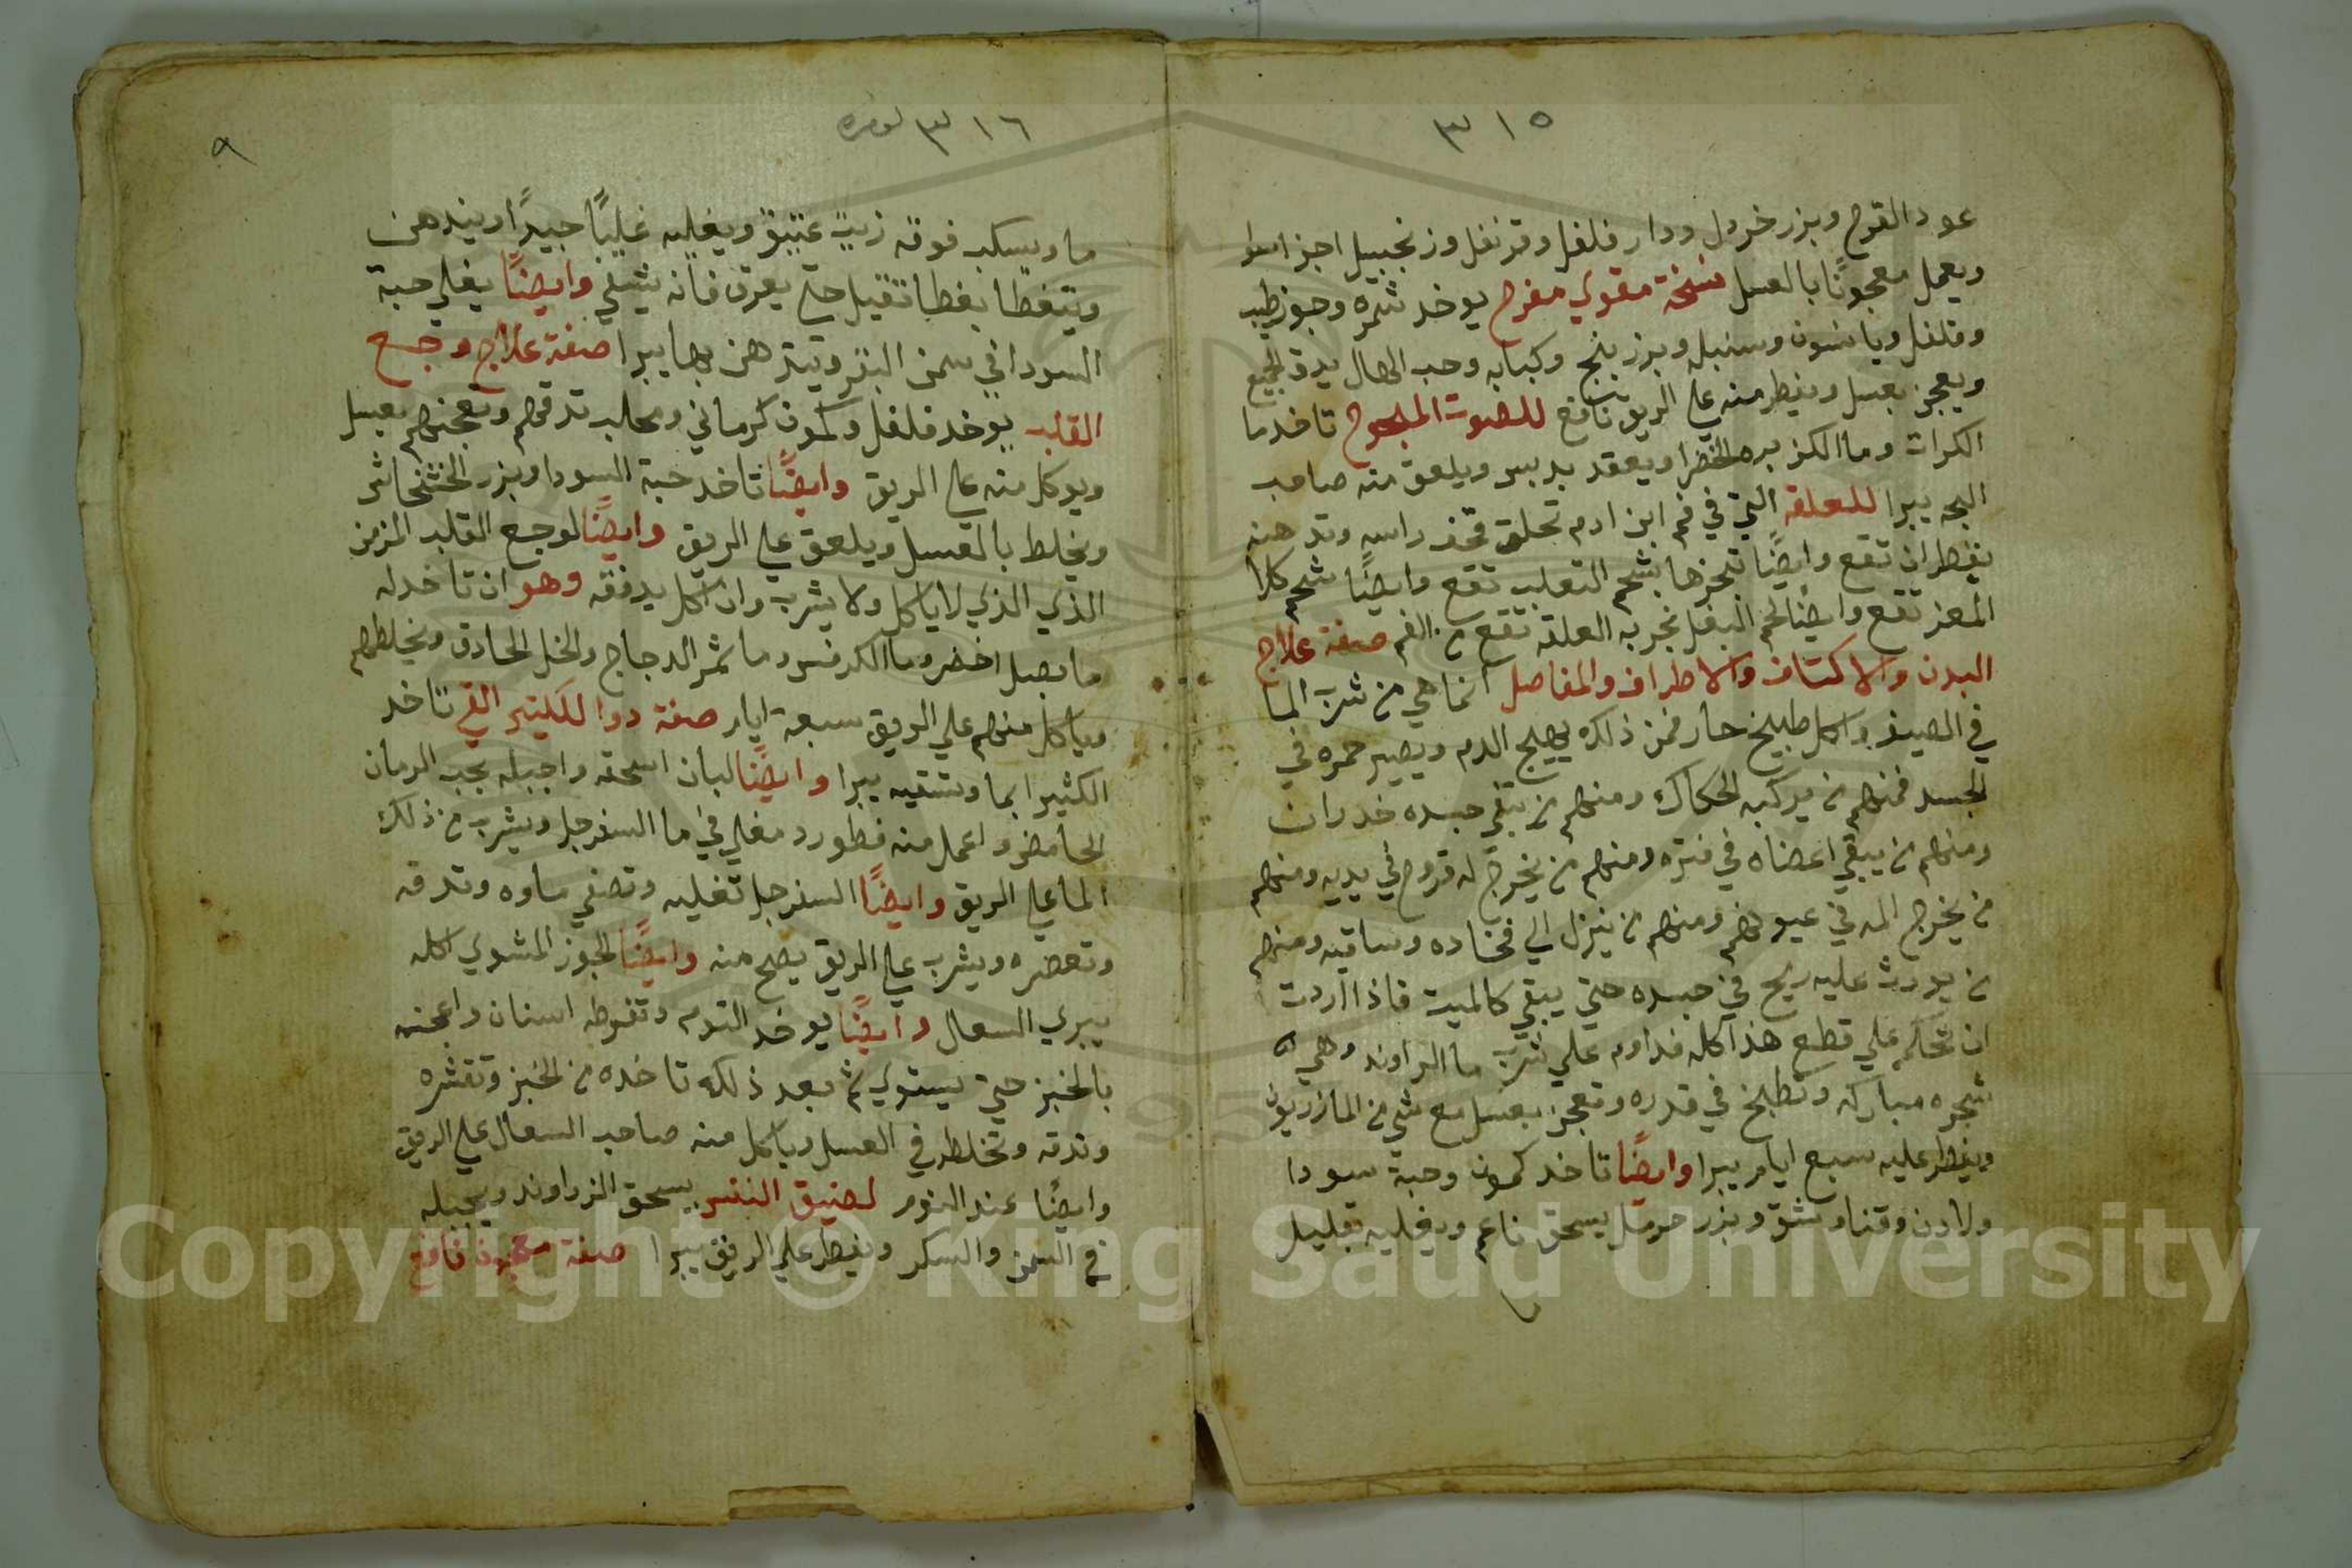 ٣١٥
عود القرح وبزر خردل ودار فلفل وقرنفل وزنجبيل اجزا سوا
ويعمل معجونًا بالعسل نسخة مقوي مفرح يوخد شمره وجوز طيب
وفلفل ويانسون وسنبل وبزر بنج وكبابه وحب الهال يدق الجميع
ويعجن بعسل ويفطر منه علي الريق نافع للصوت المبحوح تاخد ما
الكرات وما الكزبره الخضرا ويعقد بدبس ويلعق منه صاحب
البحه يبرا للعلقه التي في فم ابن ادم تحلق راسه وتدهنه
بقطران تقع وايضًا تبخرها بشحم التعلب تقع وايضًا شحم كلا
المعز تقع وايضًا لحم البغل بخر به العلقه تقع من الفم صفة علاج
البدن والاكتاف والاطراف والمفاصل انما هي من شرب الما
في الصيف واكل طبيخ حار فمن ذلك يهيج الدم ويصير حمره في
الجسد فمنهم من يركبه الحكاك ومنهم من يبقي جسده خدران
ومنهم من يبقي اعضاه في فتره ومنهم من يخرج له قروح في يديه ومنهم
من يخرج المه في عيونهم ومنهم من ينزل الي فخاده وساقيه ومنهم
من يورث عليه ريح في جسده حتي يبقي كالميت فاذا اردت
ان تحكم علي قطع هذا كله فداوم علي شرب ما الراوند وهي
شجره مباركه وتطبخ في قدره وتعجن بعسل مع شي من المازريون
ويفطر عليه سبع ايام يبرا وايضًا تاخد كمون وحبة سودا
ولادن وقنا وشق وبزر حرمل يسحق ناعم ويغليه بقليل
٣١٦
٩
ما ويسكب فوقه زيت عتيق ويغليه غليًا جيدًا ويندهن
ويتغطا بغطا تقيل حتي يعرق فانه يشفي وايضًا يغلي حبة
السودا في سمن البقر ويتدهن بها يبرا صفة علاج وجع
القلب يوخد فلفل وكمون كرماني ومحلب تدقهم وتعجنهم بعسل
ويوكل منه علي الريق وايضًا تاخد حبة السودا وبزر الخشخاش
ويخلط بالعسل ويلعق علي الريق وايضًا لوجع القلب المزمن
الذي الذي لا ياكل ولا يشرب وان اكل يدفقه وهو ان تاخد له
ما بصل اخضر وما الكرفس وما ثمر الدجاج والخل الحادق ويخلطهم
وياكل منهم علي الريق سبعة ايام صفة دوا للكتير القي تاخد
الكثيرا بما وتسقيه يبرا وايضًا لبان اسحقه واجبله بحب الرمان
الحامض واعمل منه فطور مغلي في ما السفرجل ويشرب من ذلك
الما علي الريق وايضًا السفرجل تغليه وتصفي ماوه وتدقه
وتعصره ويشرب علي الريق يصح منه وايضًا الجوز المشوي اكله
يبري السعال وايضًا يوخد التوم وتفرطه اسنان واعجنه
بالخبز حتي يستوي ثم بعد ذلك تاخده من الخبز وتقشره
وتدقه وتخلطه في العسل وياكل منه صاحب السعال علي الريق
وايضًا عند النوم لضيق النفس يسحق الزراوند ويجبله
في السمن والسكر ويفطر علي الريق يبرا صفة معجون نافع
Copyright © King Saud University